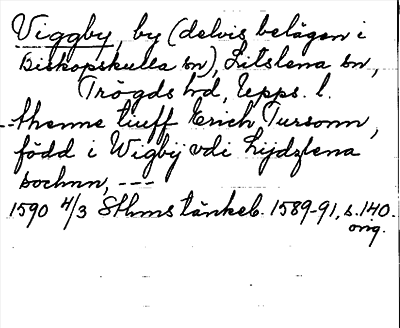 Viggby, by (delvis belägen i
Biskopskulla sn), Litslena sn,
Trögds hd, Upps. l.
--thenne tiuff Erich Tursonn,
född i Wigbÿ vdi Lijdzlena
sochnn, ---
1590 4/3 Sthms tänkeb. 1589-91, s. 140.
orig.